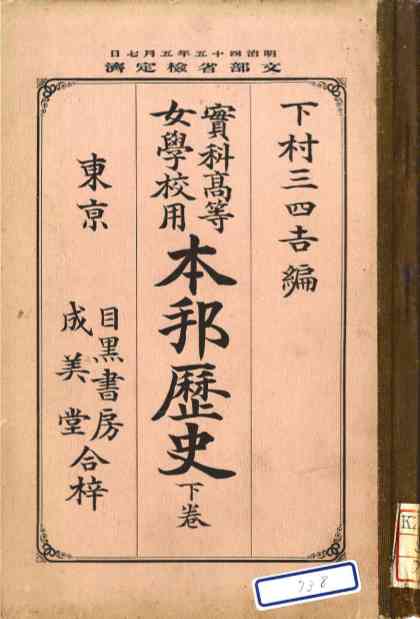 明治四十五年五月七日
文部省檢定濟
下村三四吉編
實科高等
女學校用
本邦歷史下卷
東京
目黑書房
成美堂
合梓
738